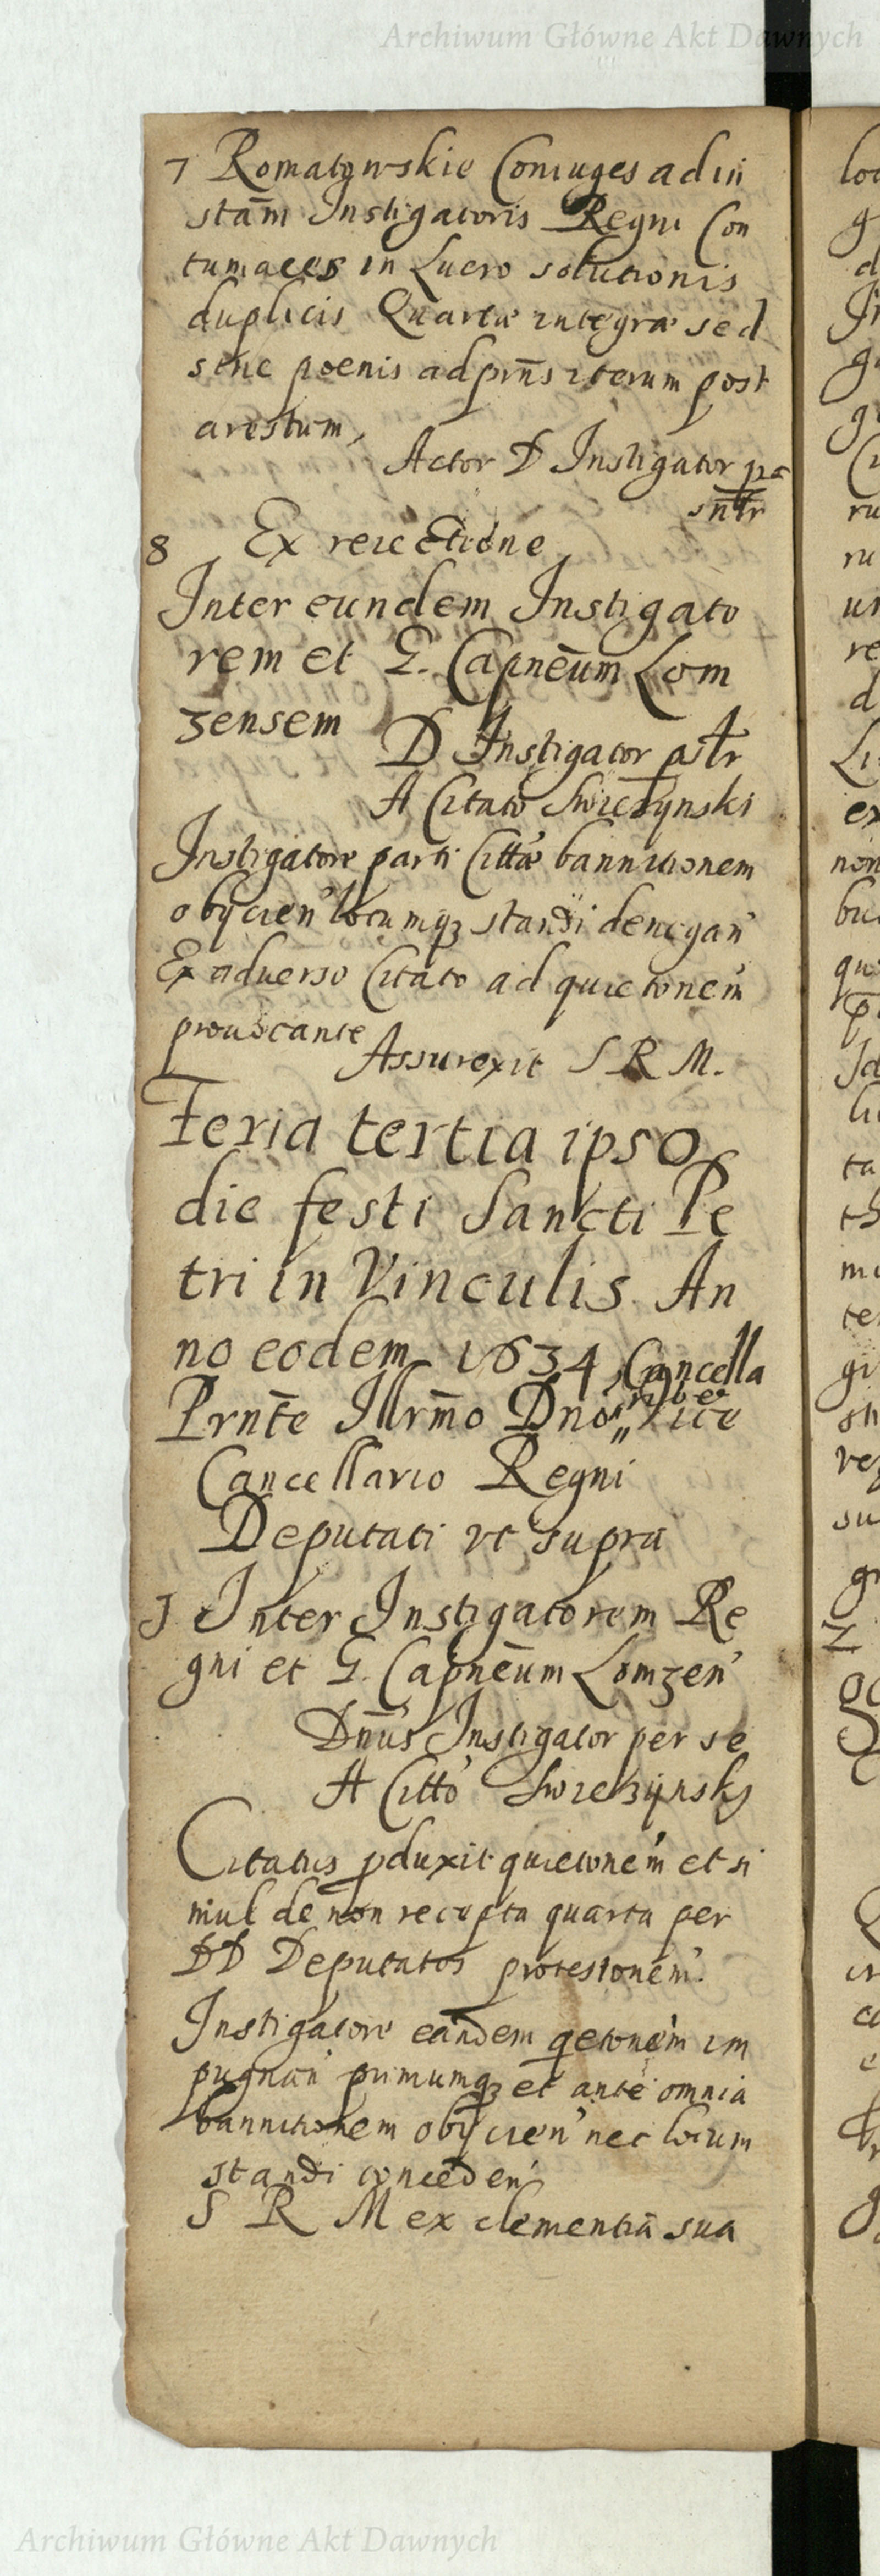 Archiwum Główne Akt Dawnych
7 Romatowskie Coniuges ad in
stām Instigatoris Regni Con
tumaces in Lucro solutionis
duplicis Quartæ integræ sed
sine poenis ad prns iterum post
arestum,
Actor D Instigator pr
sntr
8 Ex reiectione
Inter eundem Instigato
rem et G. Capnēum Lom
zensem
D Instigator pstr
A Citato Swieczynski
Instigatore parti Cittæ bannitionem
obÿcien' locumqз standi denegan'
Ex aduerso Citato ad quietonem
prouocante
Assurexit S R M.
Feria tertia ipso
die festi Sancti Pe
tri in Vinculis An
no eodem 1634
Prnte Illrmo Dno Cancella
Vice
Cancellario Regni
Deputati vt supra
1 Inter Instigatorem Re
gni et G. Capnēum Lomzen'
Dnus Instigator per se
A Citto Swieczÿnsky
Citatus pduxit quietonem et si
mul de non recepta quarta per
DD Deputatos protestonem.
Instigatore eandem qetonem im
pugnan' primumqз et ante omnia
bannitionem obÿcien' nec locum
standi conceden'
S R M ex clementia sua
Archiwum Główne Akt Dawnych